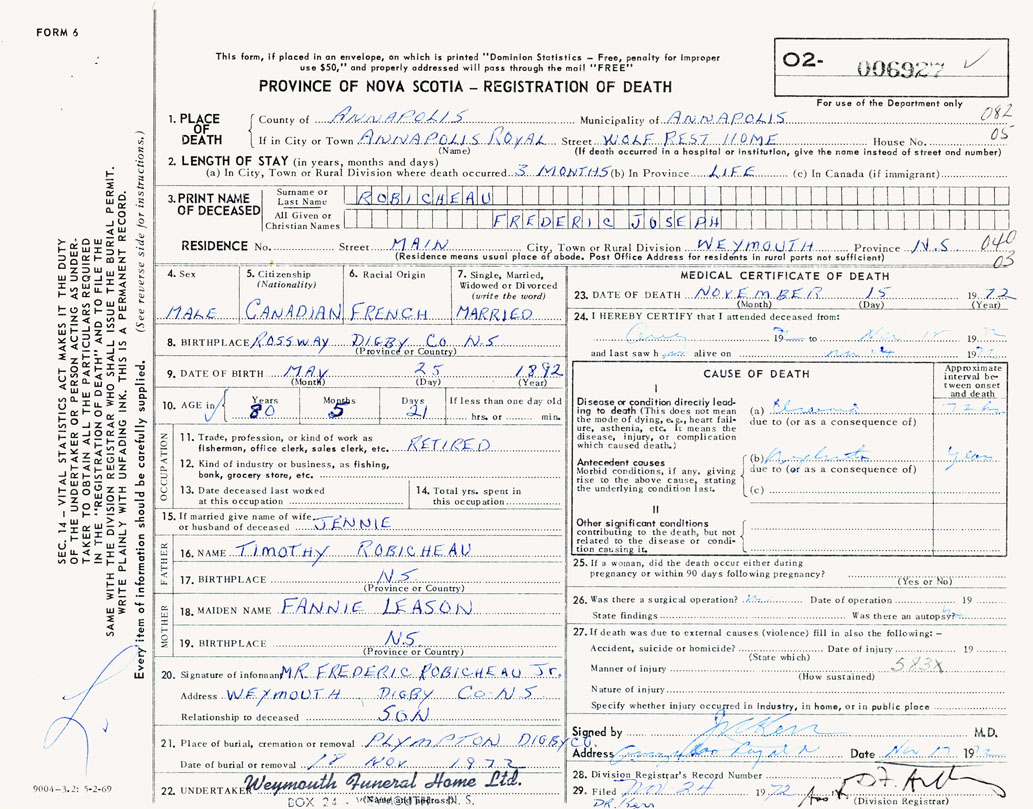 FORM 6
This form, if placed in an envelope, on which is printed "Dominion Statistics – Free, penalty for improper
use $50," and properly addressed will pass through the mail "FREE"
PROVINCE OF NOVA SCOTIA – REGISTRATION OF DEATH
02- 006927
For use of the Department only
1. PLACE OF DEATH
County of ANNAPOLIS Municipality of ANNAPOLIS 082
If in City or Town ANNAPOLIS ROYAL Street WOLF REST HOME House No. 05
(Name) (If death occurred in a hospital or institution, give the name instead of street and number)
2. LENGTH OF STAY (in years, months and days)
(a) In City, Town or Rural Division where death occurred 3 MONTHS (b) In Province LIFE (c) In Canada (if immigrant)
3. PRINT NAME OF DECEASED
Surname or Last Name ROBICHEAU
All Given or Christian Names FREDERIC JOSEPH
RESIDENCE No. Street MAIN City, Town or Rural Division WEYMOUTH Province N.S. 040
(Residence means usual place of abode. Post Office Address for residents in rural parts not sufficient) 03
4. Sex MALE
5. Citizenship (Nationality) CANADIAN
6. Racial Origin FRENCH
7. Single, Married, Widowed or Divorced (write the word) MARRIED
8. BIRTHPLACE ROSSWAY DIGBY CO N.S
(Province or Country)
9. DATE OF BIRTH MAY 25 1892
(Month) (Day) (Year)
10. AGE in Years 80 Months 5 Days 21 If less than one day old
hrs. or min.
OCCUPATION
11. Trade, profession, or kind of work as
fisherman, office clerk, sales clerk, etc. RETIRED
12. Kind of industry or business, as fishing,
bank, grocery store, etc.
13. Date deceased last worked
at this occupation
14. Total yrs. spent in
this occupation
15. If married give name of wife
or husband of deceased JENNIE
FATHER
16. NAME TIMOTHY ROBICHEAU
17. BIRTHPLACE N.S
(Province or Country)
MOTHER
18. MAIDEN NAME FANNIE LEASON
19. BIRTHPLACE N.S
(Province or Country)
20. Signature of informant MR FREDERIC ROBICHEAU Jr.
Address WEYMOUTH DIGBY CO. N.S
Relationship to deceased SON
21. Place of burial, cremation or removal PLYMPTON DIGBY CO.
Date of burial or removal 18 NOV. 1972
22. UNDERTAKER Weymouth Funeral Home Ltd.
(Name and address)
BOX 24 - N. S.
MEDICAL CERTIFICATE OF DEATH
23. DATE OF DEATH NOVEMBER 15 1972
(Month) (Day) (Year)
24. I HEREBY CERTIFY that I attended deceased from:
19 to 19
and last saw h alive on 19
CAUSE OF DEATH
Approximate interval between onset and death
I
Disease or condition directly leading
to death (This does not mean
the mode of dying, e.g., heart failure,
asthenia, etc. It means the
disease, injury, or complication
which caused death.)
(a)
due to (or as a consequence of)
Antecedent causes
Morbid conditions, if any, giving
rise to the above cause, stating
the underlying condition last.
(b)
due to (or as a consequence of)
(c)
II
Other significant conditions
contributing to the death, but not
related to the disease or condition
causing it.
25. If a woman, did the death occur either during
pregnancy or within 90 days following pregnancy?
(Yes or No)
26. Was there a surgical operation? Date of operation 19
State findings Was there an autopsy?
27. If death was due to external causes (violence) fill in also the following: –
Accident, suicide or homicide? Date of injury 19
(State which)
Manner of injury 583X
(How sustained)
Nature of injury
Specify whether injury occurred in industry, in home, or in public place
Signed by M.D.
Address Date Nov 17 19
28. Division Registrar's Record Number
29. Filed 24 1972
(Division Registrar)
DR. Kerr
SEC. 14 – VITAL STATISTICS ACT MAKES IT THE DUTY
OF THE UNDERTAKER OR PERSON ACTING AS UNDER-
TAKER TO OBTAIN ALL THE PARTICULARS REQUIRED
IN THE "REGISTRATION OF DEATH" AND TO FILE THE
SAME WITH THE DIVISION REGISTRAR WHO SHALL ISSUE THE BURIAL PERMIT.
WRITE PLAINLY WITH UNFADING INK. THIS IS A PERMANENT RECORD.
Every item of information should be carefully supplied. (See reverse side for instructions.)
9004–3.2: 5-2-69